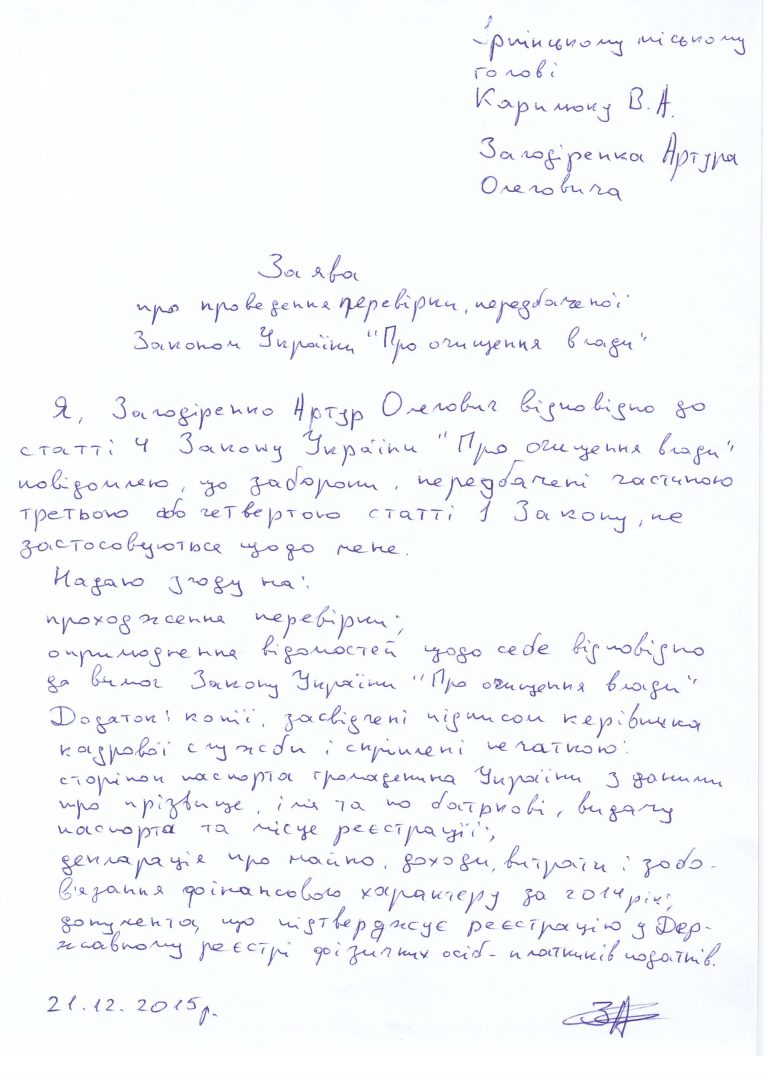 Ірпінському міському
голові
Карплюку В.А.
Загодіренка Артура
Олеговича
Заява
про проведення перевірки, передбаченої
Законом України "Про очищення влади"
Я, Загодіренко Артур Олегович відповідно до
статті 4 Закону України "Про очищення влади"
повідомляю, що заборони, передбачені частиною
третьою або четвертою статті 1 Закону, не
застосовуються щодо мене.
Надаю згоду на:
проходження перевірки;
оприлюднення відомостей щодо себе відповідно
до вимог Закону України "Про очищення влади"
Додаток: копії, засвідчені підписом керівника
кадрової служби і скріплені печаткою:
сторінок паспорта громадянина України з даними
про прізвище, ім'я та по батькові, видачу
паспорта та місце реєстрації;
декларація про майно, доходи, витрати і зобо-
в'язання фінансового характеру за 2014 рік;
документа, що підтверджує реєстрацію у Дер-
жавному реєстрі фізичних осіб-платників податків.
21.12.2015р.